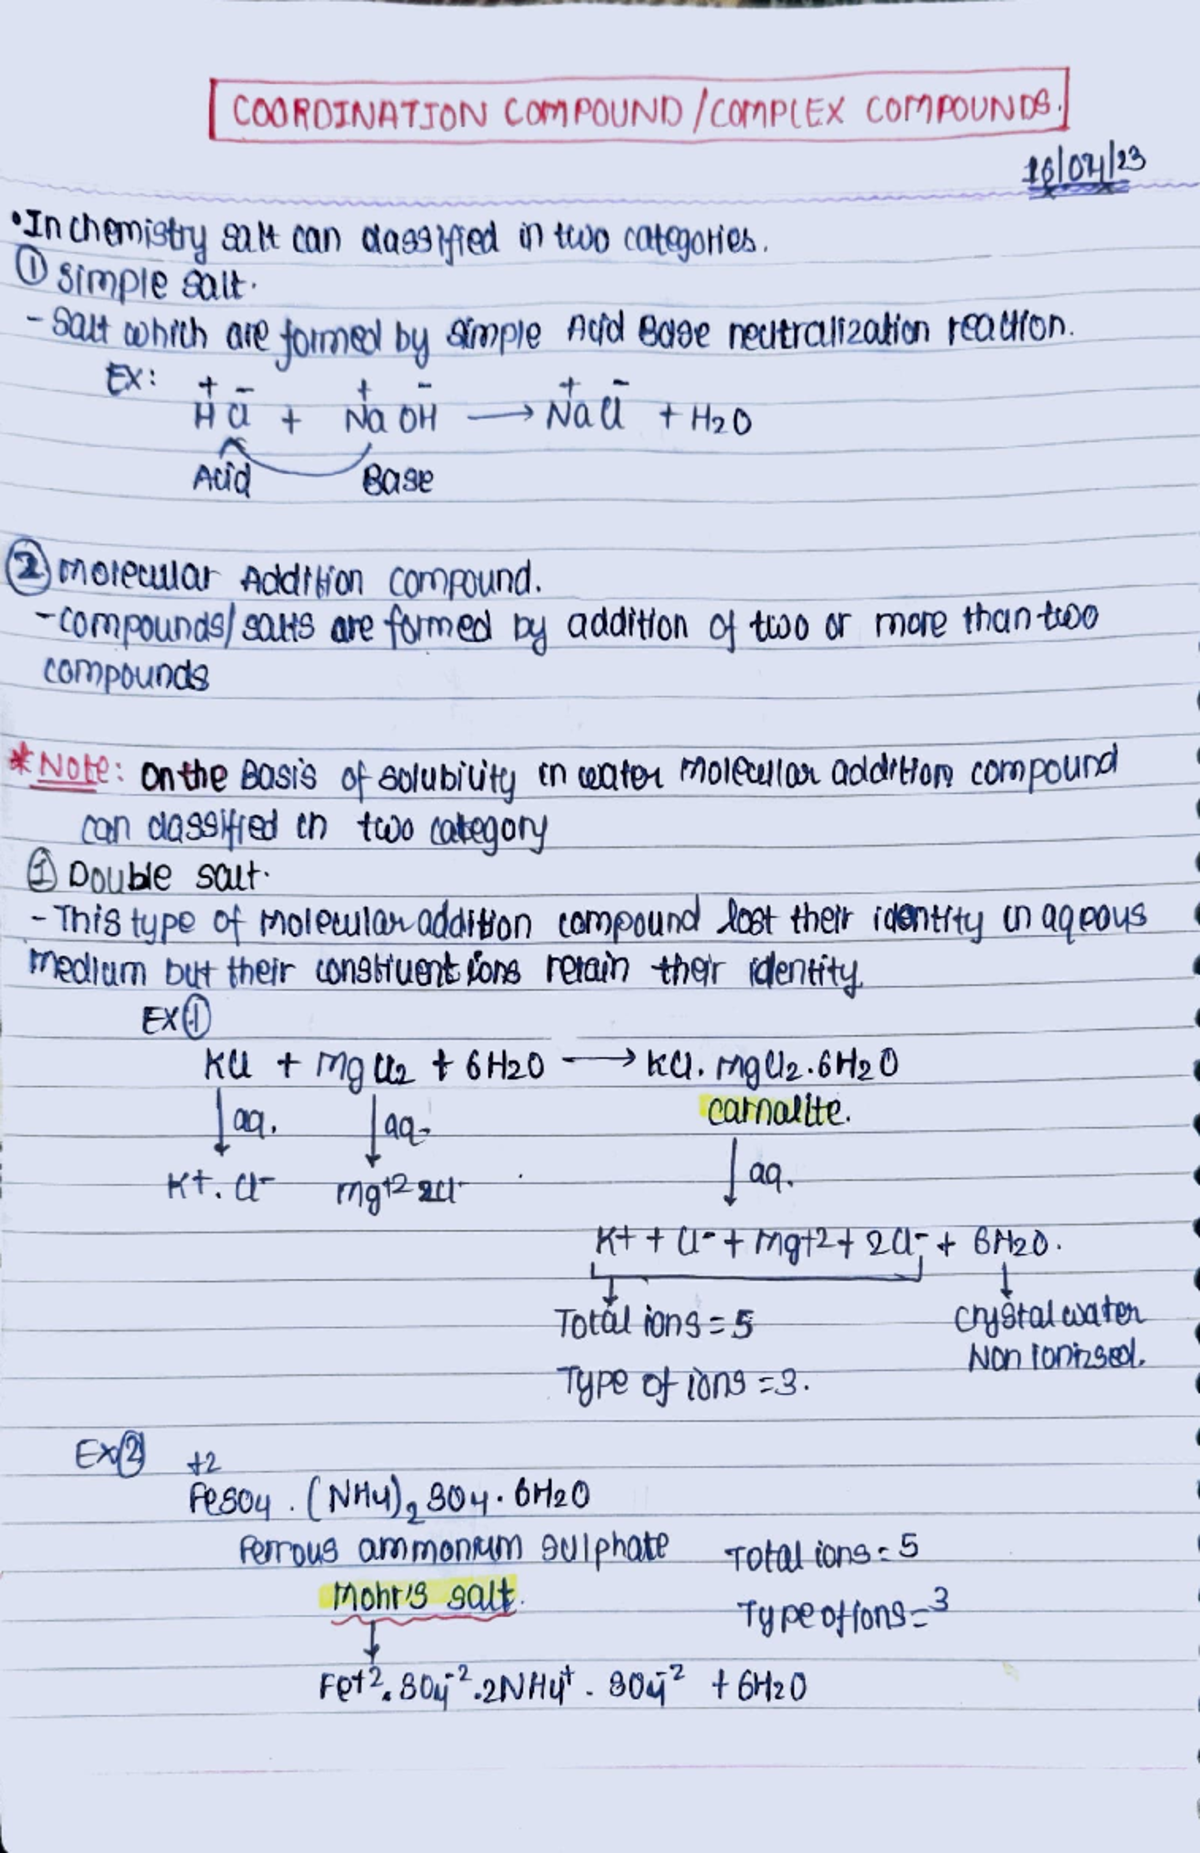 COORDINATION COMPOUND/COMPLEX COMPOUNDS.
18/04/23
•In chemistry salt can classified in two categories.
① Simple salt.
- Salt which are formed by simple Acid Base neutralization reaction.
Ex: + - + - + -
H Cl + Na OH ⟶ Na Cl + H2O
Acid Base
② Molecular Addition compound.
- compounds/salts are formed by addition of two or more than two
compounds
*Note: on the Basis of solubility in water molecular addition compound
can classified in two category
① Double salt.
- This type of molecular addition compound lost their identity in aqeous
medium but their constituent ions retain their identity.
Ex ①
KCl + MgCl2 + 6H2O ⟶ KCl. MgCl2.6H2O
carnalite.
↓aq. ↓aq. ↓aq.
K+. Cl- Mg+2 2Cl-
K+ + Cl- + Mg+2 + 2Cl- + 6H2O.
Total ions = 5 Crystal water
Type of ions = 3. Non ionized.
Ex ② +2
FeSO4 . (NH4)2 SO4. 6H2O
Ferrous ammonium sulphate Total ions = 5
Mohr's salt. Type of ions = 3
↓
Fe+2. SO4-2. 2NH4+ . SO4-2 + 6H2O